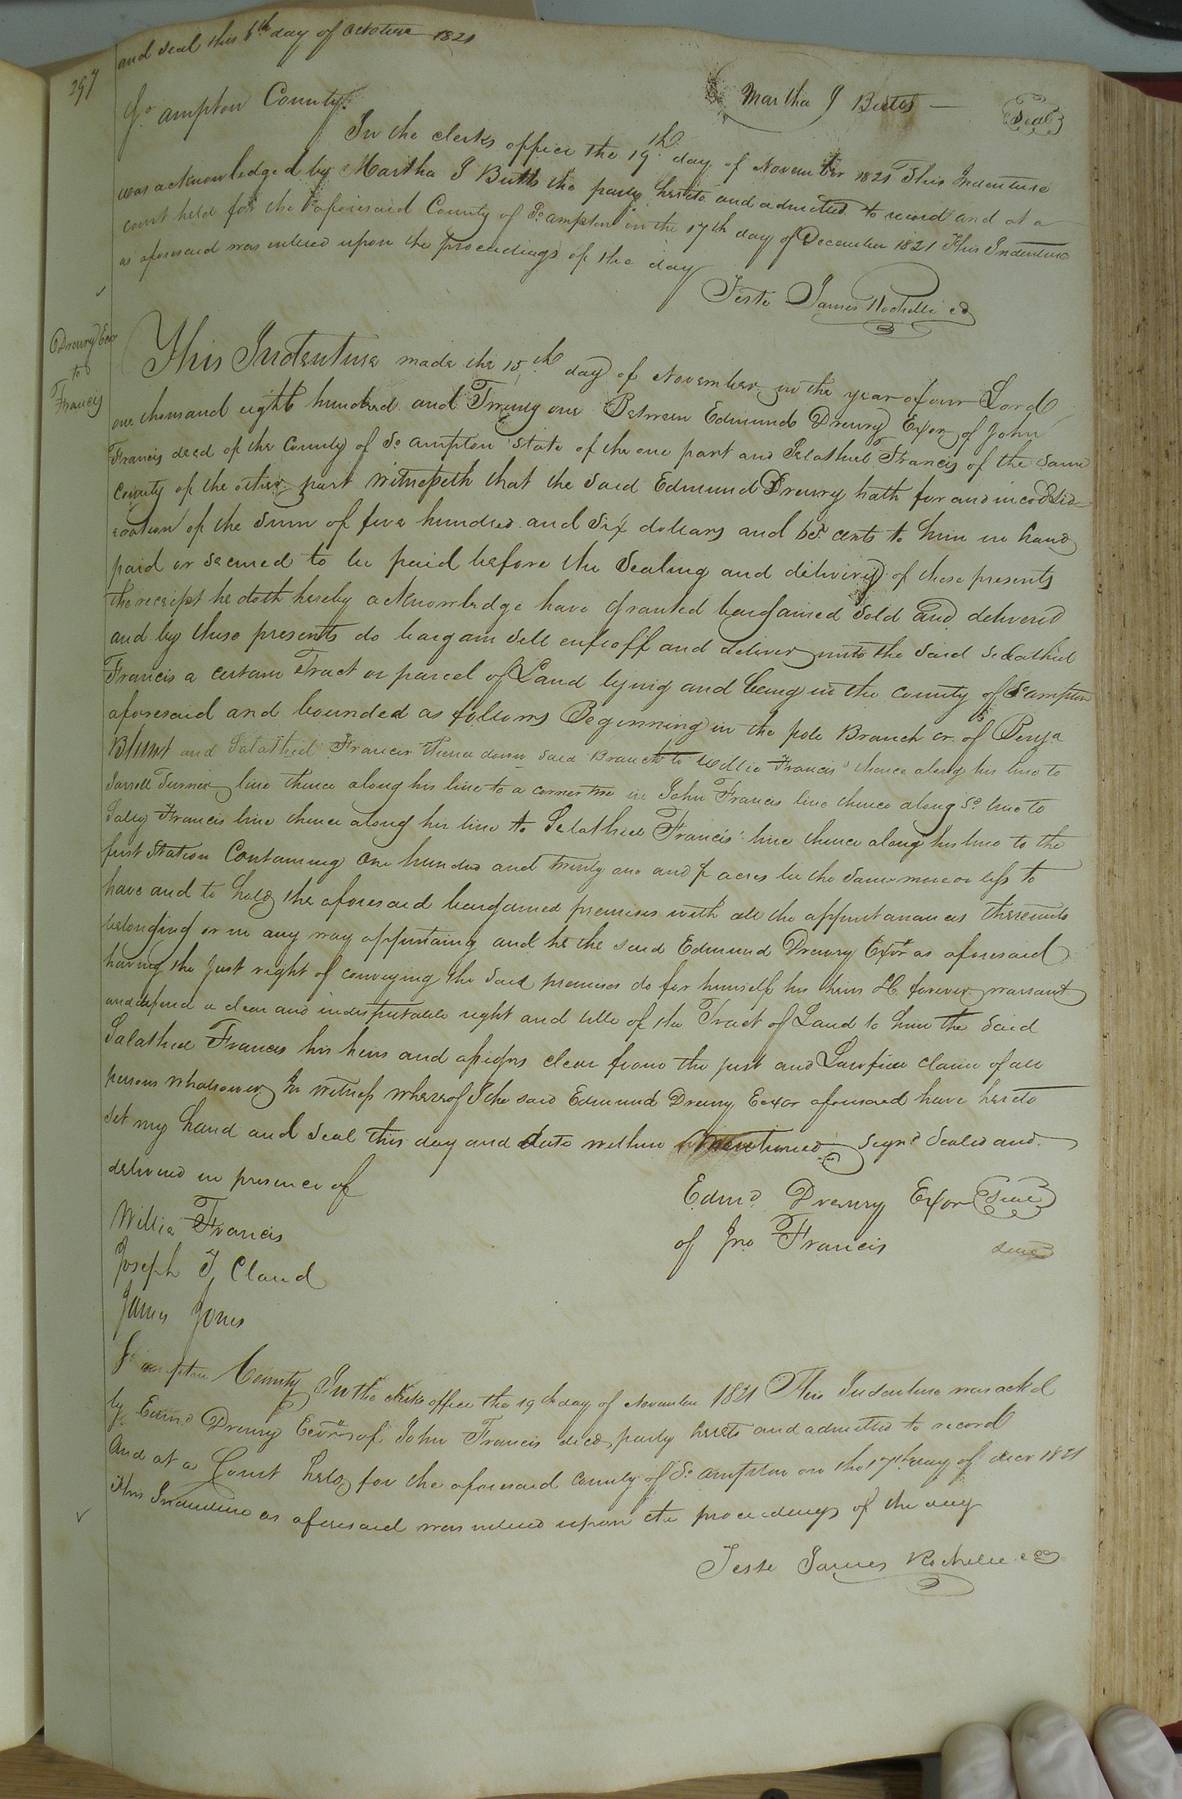 and seal this 6th day of October 1821
297
Martha J Butts Seal
So ampton County
In the clerks office the 19th day of November 1821 This Indenture
was acknowledged by Martha J Butts the party hereto and admitted to record and at a
court held for the aforesaid County of So ampton on the 17th day of December 1821 This Indenture
as aforesaid was entered upon the proceedings of the day
Teste James Rochelle
Drewry Exor
to
Francis
This Indenture made the 15th day of November in the year of our Lord
one thousand eight hundred and Twenty one Between Edmund Drewry Exor of John
Francis decd of the County of So ampton State of the one part and Selathiel Francis of the same
county of the other part witnesseth that the said Edmund Drewry hath for and in consid-
eration of the sum of five hundred and six dollars and cents to him in hand
paid or secured to be paid before the sealing and delivery of these presents
the receipt he doth hereby acknowledge have granted bargained sold and delivered
and by these presents do bargain sell enfeoff and deliver unto the said Selathiel
Francis a certain Tract or parcel of Land lying and being in the county of So ampton
aforesaid and bounded as follows Beginning in the pole Branch cr. of Benja
Blunt and Salathiel Francis thence down said Branch to Willie Francis' thence along his line to
Turner line thence along his line to a corner tree in John Francis line thence along sd line to
Francis line thence along his line to Selathiel Francis' line thence along his line to the
first Station Containing One hundred and twenty one and acres be the same more or less to
have and to hold the aforesaid bargained premises with all the appurtanances thereunto
belonging or in any way appertaing and he the said Edmund Drewry Exor as aforesaid
having the Just right of conveying the said premises do for himself his heirs &c forever warrant
and defend a clear and indisputable right and title of the Tract of Land to him the said
Salathiel Francis his heirs and assigns clear from the just and Lawfull claim of all
persons whatsoever In witness whereof I the said Edmund Drewry Exor aforesaid have hereto
set my hand and seal this day and date within mentioned signd sealed and
delivered in presence of
Edmd Drewry Exor Seal
of Jno Francis Seal
Willie Francis
Joseph T Claud
James Jones
So ampton County In the clerks office the 19th day of November 1821 This Indenture was ackd
by Edmd Drewry Exor of John Francis decd party hereto and admitted to record
And at a Court held for the aforesaid County of So ampton on the 17th day of decr 1821
This Indenture as aforesaid was entered upon the proceedings of the day
Teste James Rochelle